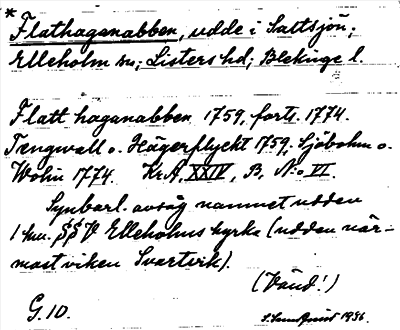 * Flathaganabben, udde i Saltsjön;
Elleholm sn; Listers hd; Blekinge l.
Flatt haganabben 1759, forts. 1774.
Tengwall o. Hägerflyckt 1759; Sjöbohm o.
Wohn 1774. KrA, XXIV, B, N:o VI.
Synbarl. avsåg namnet udden
1 km. SSV Elleholms kyrka (udden när-
mast viken Svartvik).
(Vänd!)
G. 10. 1936